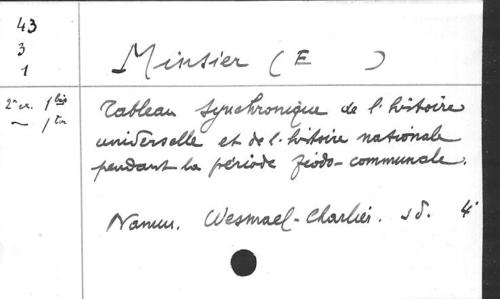 43
3
1
Minsier (E )
2e ex. 1 bis
~ 1 ter
Tableau synchronique de l'histoire
universelle et de l'histoire nationale
pendant la période féodo-communale.
Namur. Wesmael-Charlier. s d. 4°